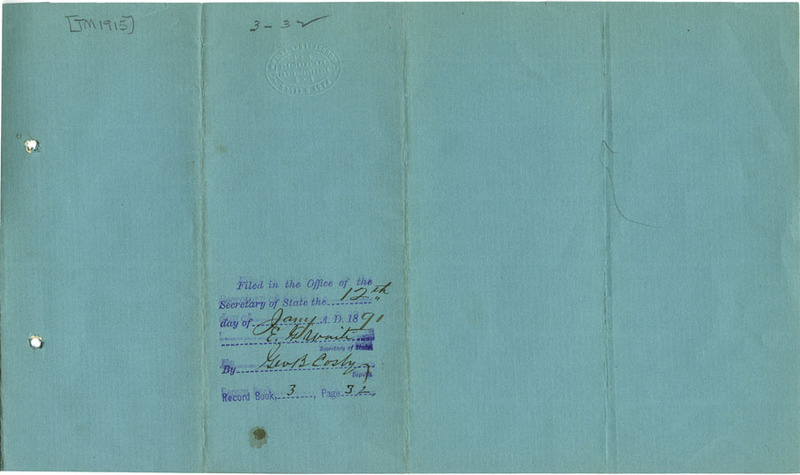 [TM1915]
3-32
Filed in the Office of the
Secretary of State the 12th
day of Jany A.D. 1891
E. G. Waite
Secretary of State
By Geo B Cosby
Deputy
Record Book, 3, Page 32